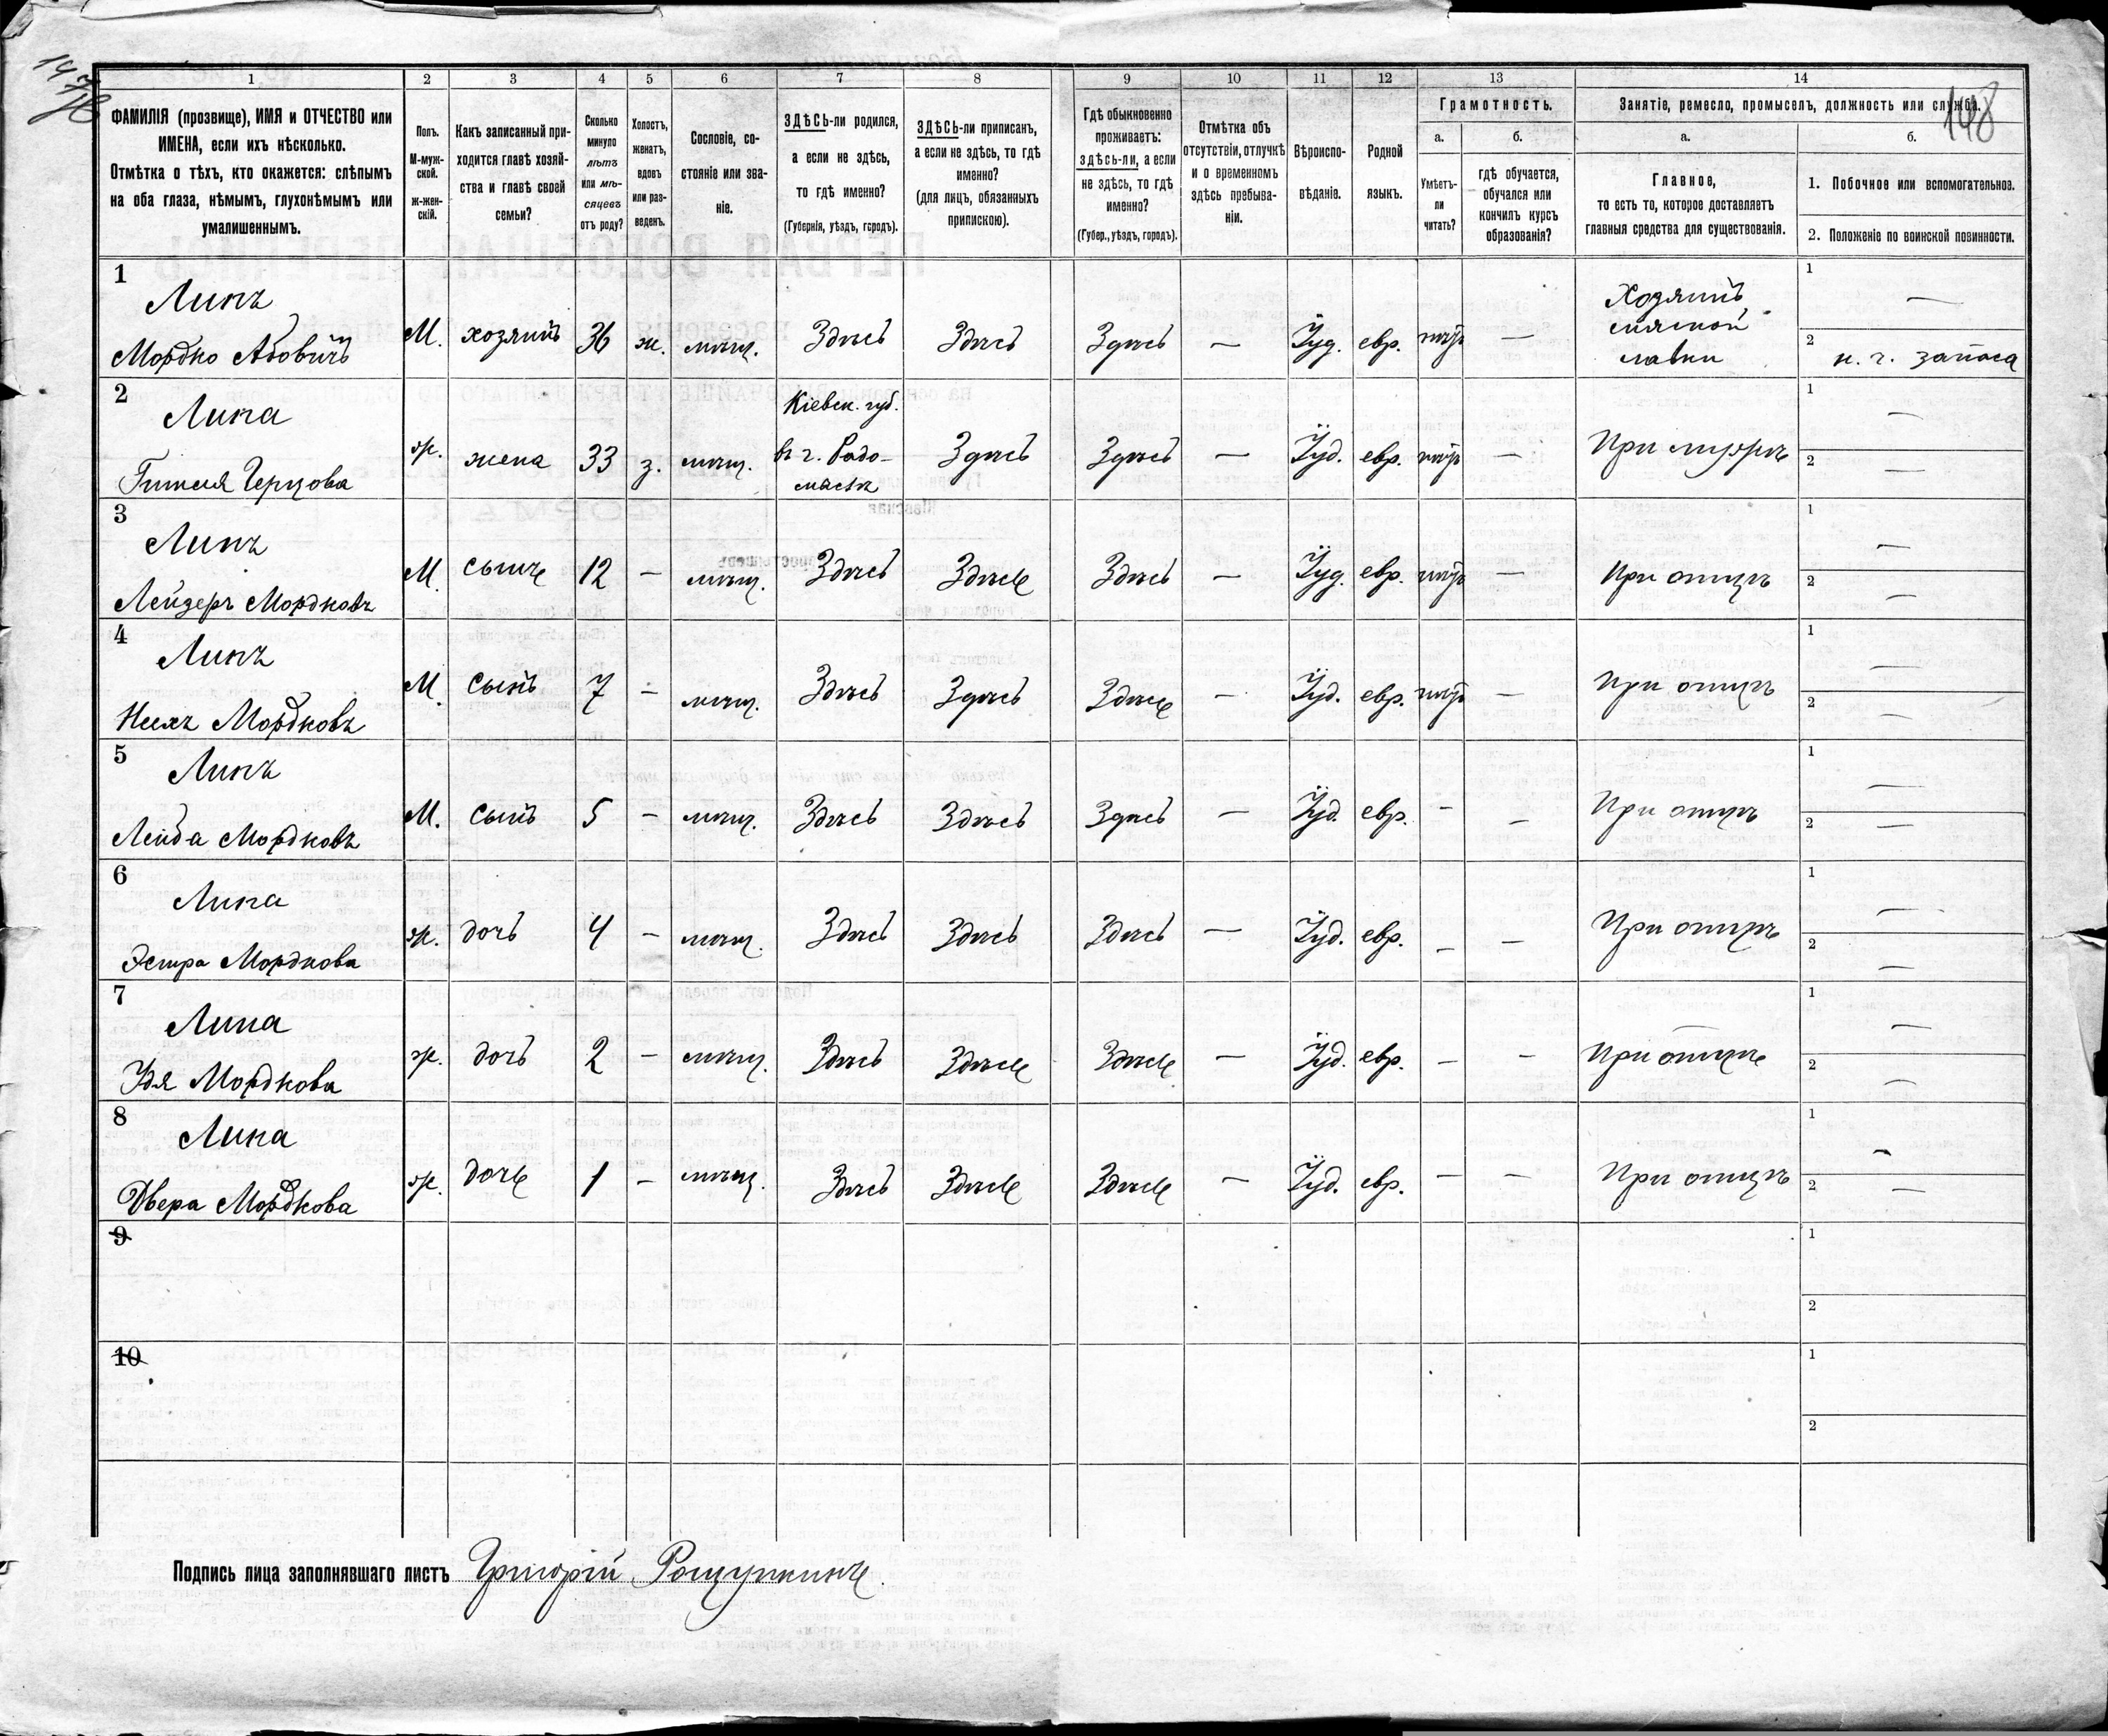 147
148
1 2 3 4 5 6 7 8 9 10 11 12 13 14
ФАМИЛІЯ (прозвище), ИМЯ и ОТЧЕСТВО или
ИМЕНА, если ихъ нѣсколько.
Отмѣтка о тѣхъ, кто окажется: слѣпымъ
на оба глаза, нѣмымъ, глухонѣмымъ или
умалишеннымъ.
Полъ.
М-муж-
ской.
ж-жен-
скій.
Какъ записанный при-
ходится главѣ хозяй-
ства и главѣ своей
семьи?
Сколько
минуло
лѣтъ
или мѣ-
сяцевъ
отъ роду?
Холостъ,
женатъ,
вдовъ
или раз-
веденъ.
Сословіе, со-
стояніе или зва-
ніе.
ЗДѢСЬ-ли родился,
а если не здѣсь,
то гдѣ именно?
(Губернія, уѣздъ, городъ).
ЗДѢСЬ-ли приписанъ,
а если не здѣсь, то гдѣ
именно?
(для лицъ, обязанныхъ
припискою).
Гдѣ обыкновенно
проживаетъ:
здѣсь-ли, а если
не здѣсь, то гдѣ
именно?
(Губер., уѣздъ, городъ).
Отмѣтка объ
отсутствіи, отлучкѣ
и о временномъ
здѣсь пребыва-
ніи.
Вѣроиспо-
вѣданіе.
Родной
языкъ.
Грамотность.
а.
Умѣетъ-
ли
читать?
б.
гдѣ обучается,
обучался или
кончилъ курсъ
образованія?
Занятіе, ремесло, промыселъ, должность или служба.
а.
Главное,
то есть то, которое доставляетъ
главныя средства для существованія.
б.
1. Побочное или вспомогательное.
2. Положеніе по воинской повинности.
1
Липъ
Мордко Абовичъ
М. хозяинъ 36 ж. мѣщ. Здѣсь Здѣсь Здѣсь — Іуд. евр. —
Хозяинъ
мясной
лавки
1 —
2 н. ч. запаса
2
Липа
Герцова
ж. жена 33 з. мѣщ.
Кіевск. губ.
въ г. Радо-
мыслѣ
Здѣсь Здѣсь — Іуд. евр. — При мужѣ
1 —
2 —
3
Липъ
Лейзеръ Мордковъ
М. сынъ 12 — мѣщ. Здѣсь Здѣсь Здѣсь — Іуд. евр. — При отцѣ
1 —
2 —
4
Липъ
Мордковъ
М. сынъ 7 — мѣщ. Здѣсь Здѣсь Здѣсь — Іуд. евр. — При отцѣ
1 —
2 —
5
Липъ
Лейба Мордковъ
М. сынъ 5 — мѣщ. Здѣсь Здѣсь Здѣсь — Іуд. евр. — — При отцѣ
1 —
2 —
6
Липа
Эстра Мордкова
ж. дочь 4 — мѣщ. Здѣсь Здѣсь Здѣсь — Іуд. евр. — — При отцѣ
1 —
2 —
7
Липа
Удя Мордкова
ж. дочь 2 — мѣщ. Здѣсь Здѣсь Здѣсь — Іуд. евр. — — При отцѣ
1 —
2 —
8
Липа
Двера Мордкова
ж. дочь 1 — мѣщ. Здѣсь Здѣсь Здѣсь — Іуд. евр. — — При отцѣ
1 —
2 —
9
1
2
10
1
2
Подпись лица заполнявшаго листъ Григорій Рощупкинъ.